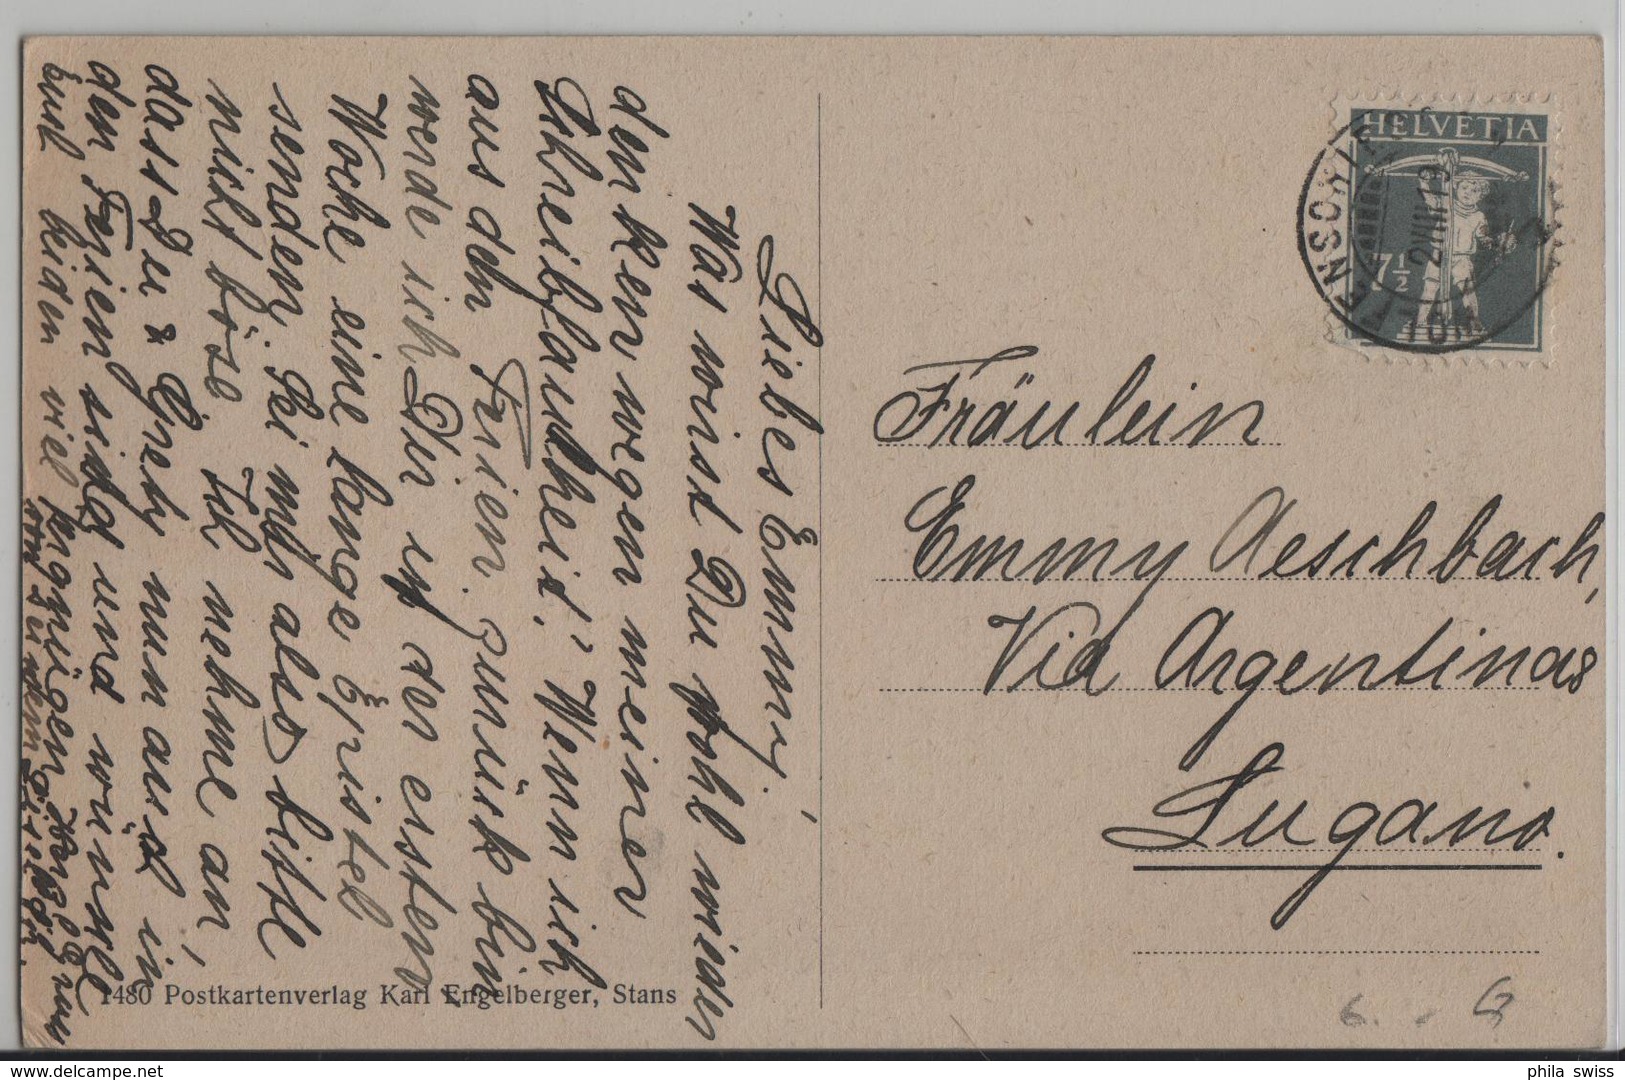 Liebes Emmy,
Was wirst Du wohl wider
denken wegen meiner
Schreibfaulheit! Wenn ich
aus den Ferien zurück bin
werde ich Dir in der ersten
Woche eine lange Epistel
senden. Sei mir also bitte
nicht böse. Ich nehme an,
dass Du & Grety nun auch in
den Ferien seid und wünsche
Euch beiden viel Vergnügen. Herzl. Gruss
von Deinem
HELVETIA
7½
WOLFENSCHIESSEN
2.VIII.19
Fräulein
Emmy Aeschbach,
Via Argentinas
Lugano.
1480 Postkartenverlag Karl Engelberger, Stans
6.- G
phila swiss
www.delcampe.net